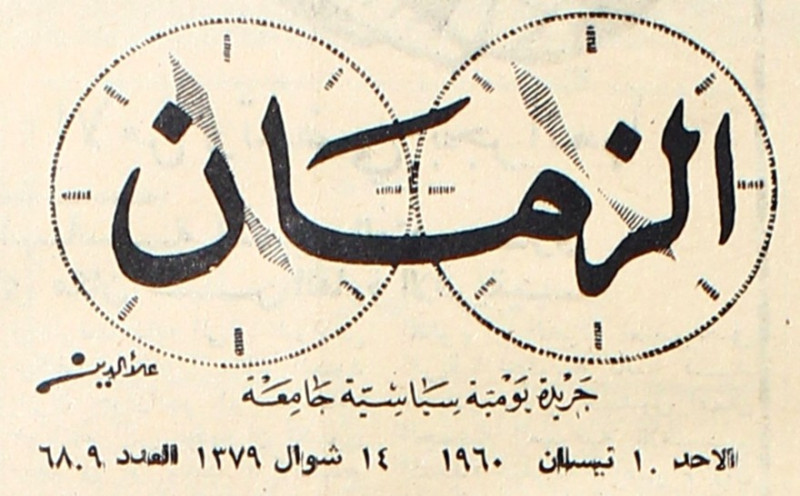 الزمان
علاء الدين
جريدة يومية سياسية جامعة
الاحد ١٠ نيسان ١٩٦٠ ١٤ شوال ١٣٧٩ العدد ٦٨٠٩